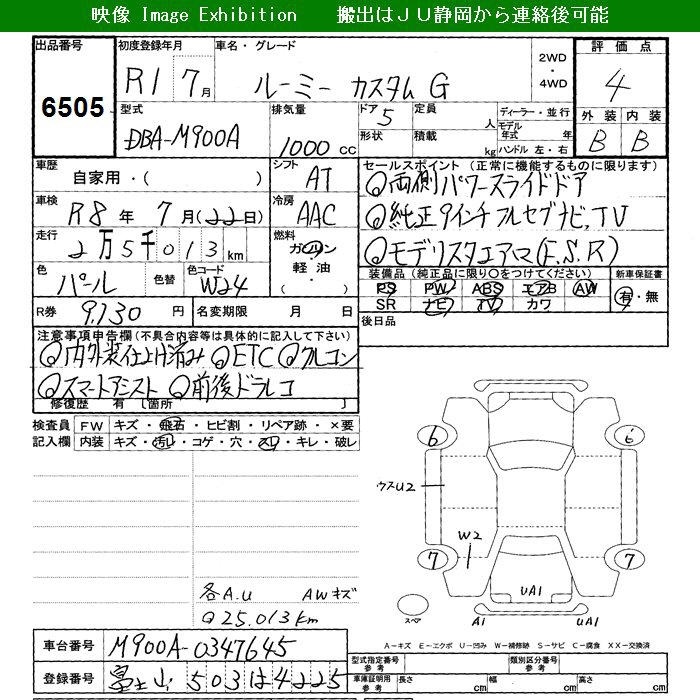 映像 Image Exhibition　　搬出はＪＵ静岡から連絡後可能
出品番号
6505
初度登録年月
R1 7月
車名・グレード
ルーミー カスタム G
2WD
・
4WD
評価点
4
型式
DBA-M900A
排気量
1000 cc
ドア 5
形状
定員 人
積載 kg
ディーラー・並行
モデル年式 年
ハンドル 左・右
外装 内装
B B
車歴
自家用・( )
シフト
AT
車検
R8年 7月(22日)
冷房
AAC
走行
2万5千013km
燃料
ガソリン
軽油・
( )
色
パール
色替
色コード
W24
R券 9,130 円
名変期限 月 日
セールスポイント (正常に機能するものに限ります)
◎両側パワースライドドア
◎純正9インチフルセグナビ,TV
◎モデリスタエアロ(F.S.R)
装備品 (純正品に限り〇をつけてください)
PS PW ABS エアB AW
SR ナビ カワ
新車保証書
有・無
後日品
注意事項申告欄 (不具合内容等は具体的に記入して下さい)
◎内外装仕上げ済み ◎ETC ◎クルコン
◎スマートアシスト ◎前後ドラレコ
修復歴 有 [箇所 ]
検査員記入欄
FW キズ・飛石・ヒビ割・リペア跡・×要
内装 キズ・汚れ・コゲ・穴・スレ・キレ・破レ
6 6
ウスU2
W2
7 7
UA1
スペア
A1 UA1
各A.U AWキズ
Q25,013km
A－キズ E－エクボ U－凹み W－補修跡 S－サビ C－腐食 XX－交換済
車台番号 M900A-0347645
登録番号 富士山 503 は 4225
型式指定番号 参考
類別区分番号 参考
車庫証明用 参考
長さ cm 幅 cm 高さ cm